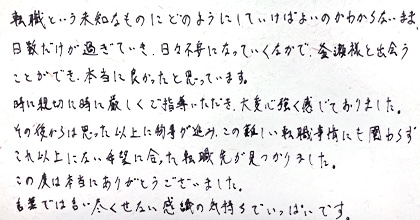 転職という未知なものにどのようにしていけばよいのかわからないまま
日数だけが過ぎていき、日々不安になっていくなかで、釜瀬様と出会う
ことができ、本当に良かったと思っています。
時に親切に時に厳しくご指導いただき、大変心強く感じておりました。
その後からは思った以上に物事が進み、この難しい転職事情にも関わらず
これ以上にない希望に合った転職先が見つかりました。
この度は本当にありがとうございました。
言葉では言い尽くせない感謝の気持ちでいっぱいです。